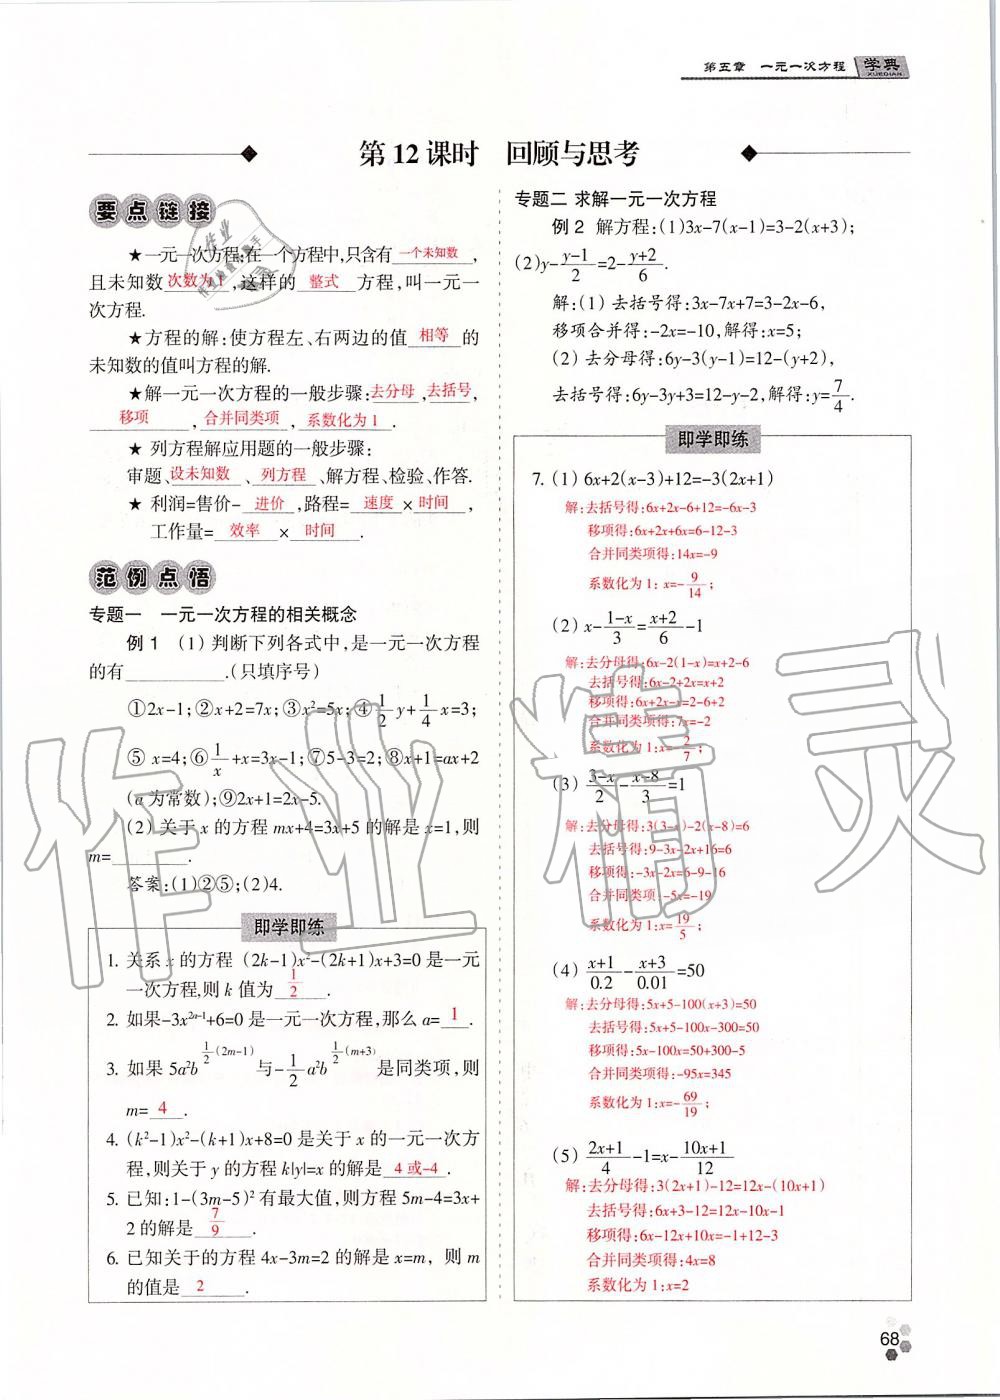 第五章 一元一次方程 学典
XUEDIAN
第12课时 回顾与思考
要点链接
★一元一次方程:在一个方程中,只含有一个未知数,
且未知数次数为1,这样的整式方程,叫一元一
次方程.
★方程的解:使方程左、右两边的值相等的
未知数的值叫方程的解.
★解一元一次方程的一般步骤:去分母,去括号,
移项,合并同类项,系数化为1.
★ 列方程解应用题的一般步骤:
审题、设未知数、列方程、解方程、检验、作答.
★ 利润=售价-进价,路程=速度×时间,
工作量=效率×时间.
范例点悟
专题一 一元一次方程的相关概念
例1 (1)判断下列各式中,是一元一次方程
的有________.(只填序号)
①2x-1;②x+2=7x;③x²=5x;④1/2 y+1/4 x=3;
⑤ x=4;⑥1/x+x=3x-1;⑦5-3=2;⑧x+1=ax+2
(a为常数);⑨2x+1=2x-5.
(2)关于x的方程mx+4=3x+5的解是x=1,则
m=________.
答案:(1)②⑤;(2)4.
即学即练
1. 关系x的方程 (2k-1)x²-(2k+1)x+3=0是一元
一次方程,则k值为 1/2 .
2. 如果-3x²ᵃ⁻¹+6=0是一元一次方程,那么a= 1 .
3. 如果5a²b^{1/2(2m-1)}与-1/2 a²b^{1/2(m+3)}是同类项,则
m= 4 .
4. (k²-1)x²-(k+1)x+8=0是关于x的一元一次方
程,则关于y的方程k|y|=x的解是 4或-4 .
5. 已知:1-(3m-5)²有最大值,则方程5m-4=3x+
2的解是 7/9 .
6. 已知关于的方程4x-3m=2的解是x=m, 则m
的值是 2 .
专题二 求解一元一次方程
例2 解方程:(1)3x-7(x-1)=3-2(x+3);
(2)y-(y-1)/2=2-(y+2)/6.
解:(1)去括号得:3x-7x+7=3-2x-6,
移项合并得:-2x=-10,解得:x=5;
(2)去分母得:6y-3(y-1)=12-(y+2),
去括号得:6y-3y+3=12-y-2,解得:y=7/4.
即学即练
7. (1) 6x+2(x-3)+12=-3(2x+1)
解:去括号得:6x+2x-6+12=-6x-3
移项得:6x+2x+6x=6-12-3
合并同类项得:14x=-9
系数化为1: x=-9/14;
(2) x-(1-x)/3=(x+2)/6-1
解:去分母得:6x-2(1-x)=x+2-6
去括号得:6x-2+2x=x+2
移项得:6x+2x-x=2-6+2
合并同类项得:7x=-2
系数化为1:x=-2/7;
(3) (3-x)/2-(x-8)/3=1
解:去分母得:3(3-x)-2(x-8)=6
去括号得:9-3x-2x+16=6
移项得:-3x-2x=6-9-16
合并同类项:-5x=-19
系数化为1:x=19/5;
(4) (x+1)/0.2-(x+3)/0.01=50
解:去分母得:5x+5-100(x+3)=50
去括号得:5x+5-100x-300=50
移项得:5x-100x=50+300-5
合并同类项得:-95x=345
系数化为1:x=-69/19;
(5) (2x+1)/4-1=x-(10x+1)/12
解:去分母得:3(2x+1)-12=12x-(10x+1)
去括号得:6x+3-12=12x-10x-1
移项得:6x-12x+10x=-1+12-3
合并同类项得:4x=8
系数化为1:x=2
68
作业精灵